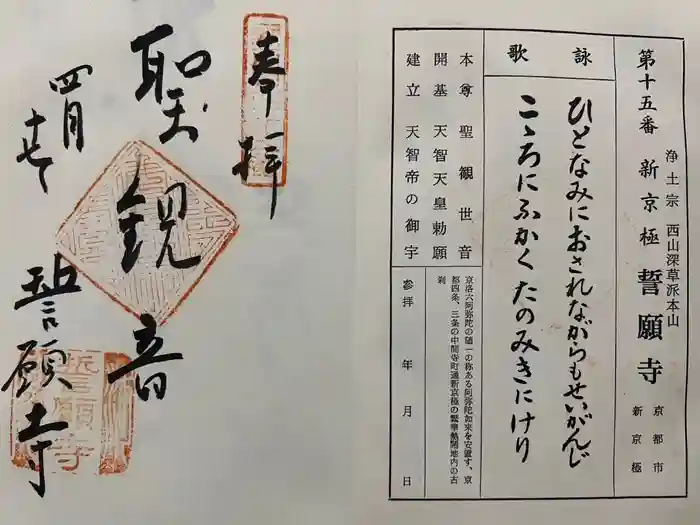 第十五番 新京極 誓願寺
浄土宗 西山深草派本山
京都市
新京極
詠歌
ひとなみにおされながらもせいがんじ
こゝろにふかくたのみきにけり
本尊 聖観世音
開基 天智天皇勅願
建立 天智帝の御宇
京洛六阿弥陀の随一の称ある阿弥陀如来を安置す、京
都四条、三条の中間寺町通新京極の繁華熱閙地内の古
刹
参拝 年 月 日
奉拝
聖観音
四月
誓願寺
誓願寺